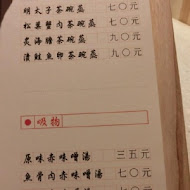 明太子茶碗蒸 七〇元
松葉蟹肉茶碗蒸 七〇元
炙海膽茶碗蒸 九〇元
清鮭魚卵茶碗蒸 九〇元
吸物
原味赤味噌湯 三五元
魚骨肉赤味噌湯